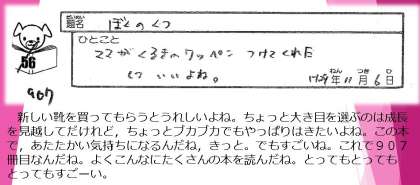 だいめい
題名 ぼくのくつ
ひとこと
ママがくるまのワッペン つけてくれた
って いいよね。
ねん つき にち
年11月6日
56
907
新しい靴を買ってもらうとうれしいよね。ちょっと大き目を選ぶのは成長
を見越してだけれど，ちょっとブカブカでもやっぱりはきたいよね。この本
で，あたたかい気持ちになるんだね，きっと。でもすごいね。これで９０７
冊目なんだね。よくこんなにたくさんの本を読んだね。とってもとっても
とってもすごーい。